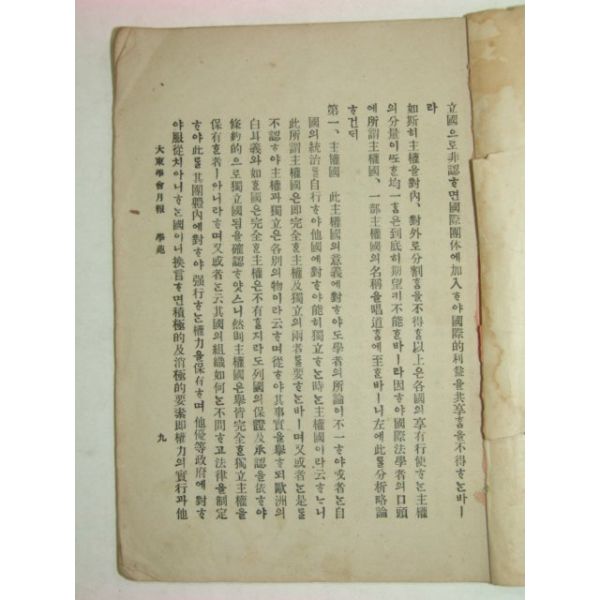 立國으로非認ᄒᆞ면國際團体에加入ᄒᆞ야國際的利益을共享홈을不得ᄒᆞᄂᆞᆫ바ㅣ
라
如斯히主權을對內、對外로分割홈을不得홈以上은各國의享有行使ᄒᆞᄂᆞᆫ主權
의分量이ᄯᅩᄒᆞᆫ均一홈은到底히期望키不能ᄒᆞᆫ바ㅣ라因ᄒᆞ야國際法學者의口頭
에所謂主權國、一部主權國의名稱을唱道홈에至ᄒᆞᆫ바ㅣ니左에此ᄅᆞᆯ分析略論
ᄒᆞ건ᄃᆡ
第一、主權國　此主權國의意義에對ᄒᆞ야도學者의所論이不一ᄒᆞ야或者ᄂᆞᆫ自
國의統治ᄅᆞᆯ自行ᄒᆞ야他國에對ᄒᆞ야能히獨立ᄒᆞᄂᆞᆫ時ᄂᆞᆫ主權國이라云ᄒᆞᄂᆞ니
此所謂主權國은即完全ᄒᆞᆫ主權及獨立의兩者ᄅᆞᆯ要ᄒᆞᄂᆞᆫ바ㅣ며又或者ᄂᆞᆫ是ᄅᆞᆯ
不認ᄒᆞ야主權과獨立은各別의物이라云ᄒᆞ며從ᄒᆞ야其事實을擧ᄒᆞ되歐洲의
白耳義와如ᄒᆞᆫ國은完全ᄒᆞᆫ主權은不有ᄒᆞᆯ지라도列國의保證及承認을依ᄒᆞ야
條約的으로獨立國됨을確認ᄒᆞ얏스니然則主權國은擧皆完全ᄒᆞᆫ獨立主權을
保有ᄒᆞᆫ者ㅣ아니라ᄒᆞ며又或者ᄂᆞᆫ云其國의組織如何ᄂᆞᆫ不問ᄒᆞ고法律을制定
ᄒᆞ야此ᄅᆞᆯ其團體內에對ᄒᆞ야强行ᄒᆞᄂᆞᆫ權力을保有ᄒᆞ며他優等政府에對ᄒᆞ
야服從치아니ᄒᆞᄂᆞᆫ國이니換言ᄒᆞ면積極的及消極的要素即權力의實行과他
大東學會月報　學苑　九